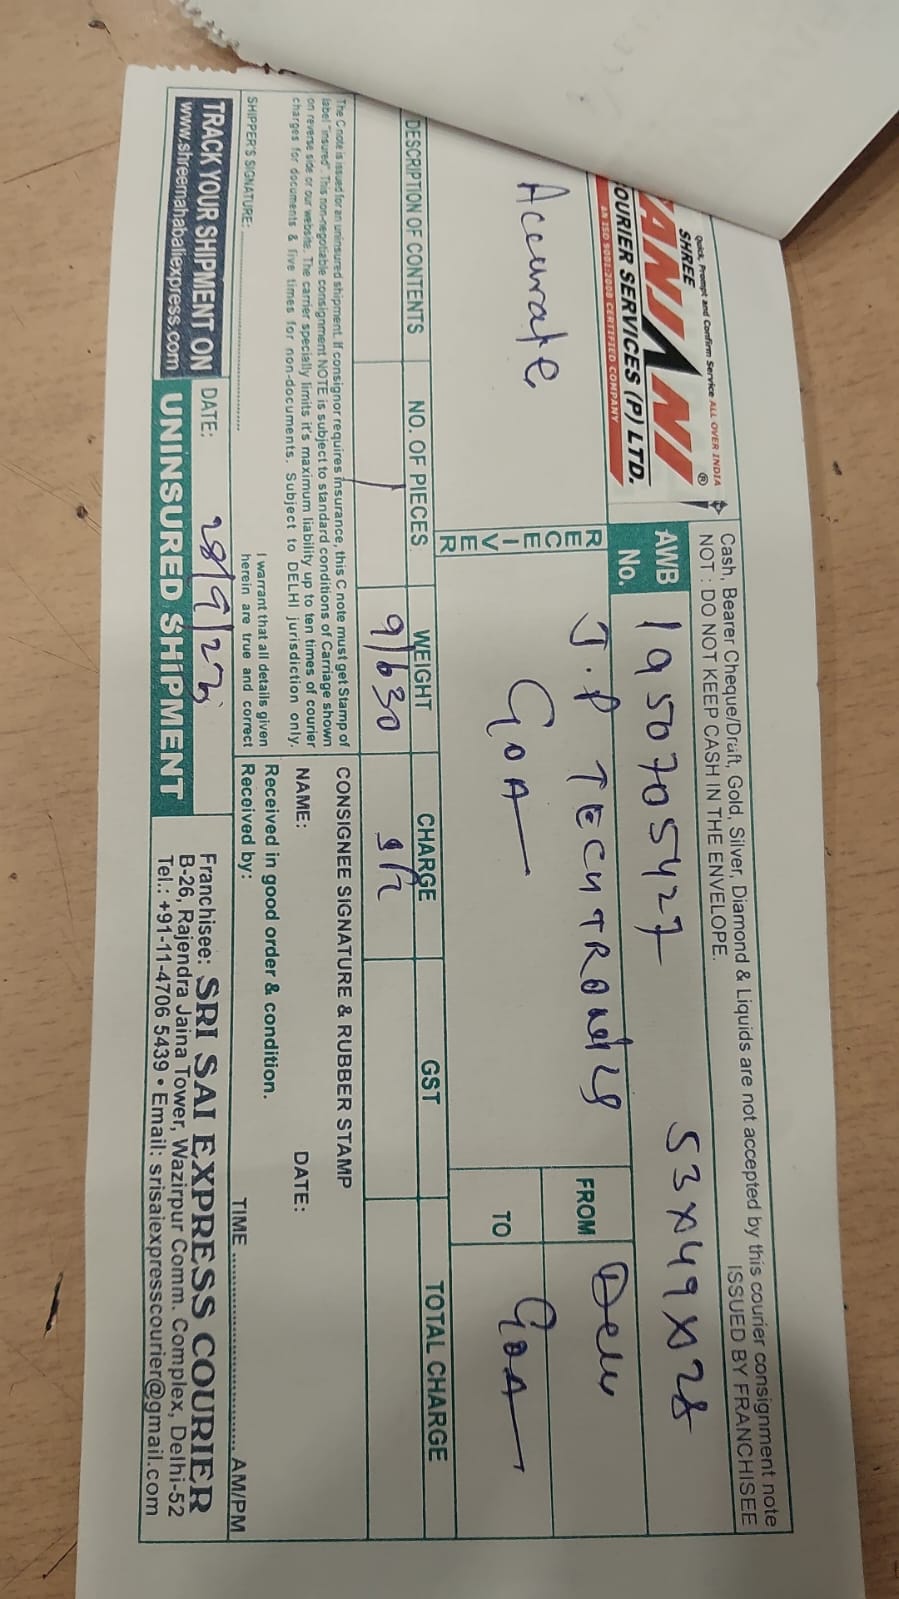 Quick, Prompt and Confirm Service ALL OVER INDIA
SHREE
ANJANI ®
COURIER SERVICES (P) LTD.
AN ISO 9001:2008 CERTIFIED COMPANY
Cash, Bearer Cheque/Draft, Gold, Silver, Diamond & Liquids are not accepted by this courier consignment note
NOT : DO NOT KEEP CASH IN THE ENVELOPE. ISSUED BY FRANCHISEE
AWB No. 1950705427 53x49x28
Accurate
RECEIVER
J.P TECHTRONICS
GOA
FROM Delhi
TO GOA
DESCRIPTION OF CONTENTS NO. OF PIECES WEIGHT CHARGE GST TOTAL CHARGE
1 9/630
The C note is issued for an uninsured shipment. If consignor requires insurance, this C note must get Stamp of
label "insured". This non-negotiable consignment NOTE is subject to standard conditions of Carriage shown
on reverse side or our website. The carrier specially limits it's maximum liability up to ten times of courier
charges for documents & five times for non-documents. Subject to DELHI jurisdiction only.
I warrant that all details given
SHIPPER'S SIGNATURE: herein are true and correct
CONSIGNEE SIGNATURE & RUBBER STAMP
NAME: DATE:
Received in good order & condition.
Received by: TIME AM/PM
TRACK YOUR SHIPMENT ON
www.shreemahabaliexpress.com
DATE: 28/9/23
UNINSURED SHIPMENT
Franchisee: SRI SAI EXPRESS COURIER
B-26, Rajendra Jaina Tower, Wazirpur Comm. Complex, Delhi-52
Tel.: +91-11-4706 5439 • Email: srisaiexpresscourier@gmail.com